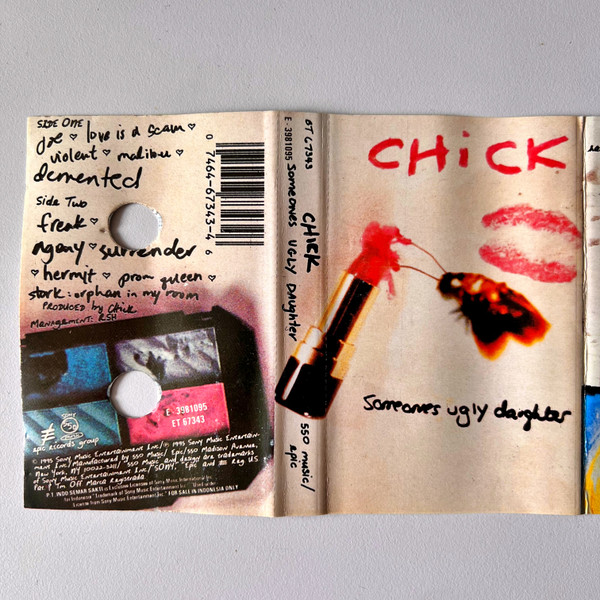 SIDE ONE
joe ♡ love is a scam ♡
violent ♡ malibu ♡
demented
Side Two
freak ♡
agony ♡ surrender
♡ hermit ♡ prom queen ♡
stork: orphan in my room
PRODUCED by Chick
MANAGEMENT: RSH
SONY
550
MUSIC
epic records group
E 3981095
ET 67343
© 1995 Sony Music Entertainment Inc./℗ 1995 Sony Music Entertain-
ment Inc./Manufactured by 550 Music/Epic/550 Madison Avenue,
New York, NY 10022-3211/"550 Music and design are trademarks
of Sony Music Entertainment Inc./"SONY," Epic and Reg. US
Pat. & Tm. Off. Marca Registrada
P.T. INDO SEMAR SAKTI
for Indonesia
FOR SALE IN INDONESIA ONLY
License from Sony Music Entertainment Inc.
0 7464-67343-4 6
E - 3981095
ET 67343
CHicK
SOMEONES UGLY DAUGHTER
550 music/
epic
CHiCK
someones ugly daughter